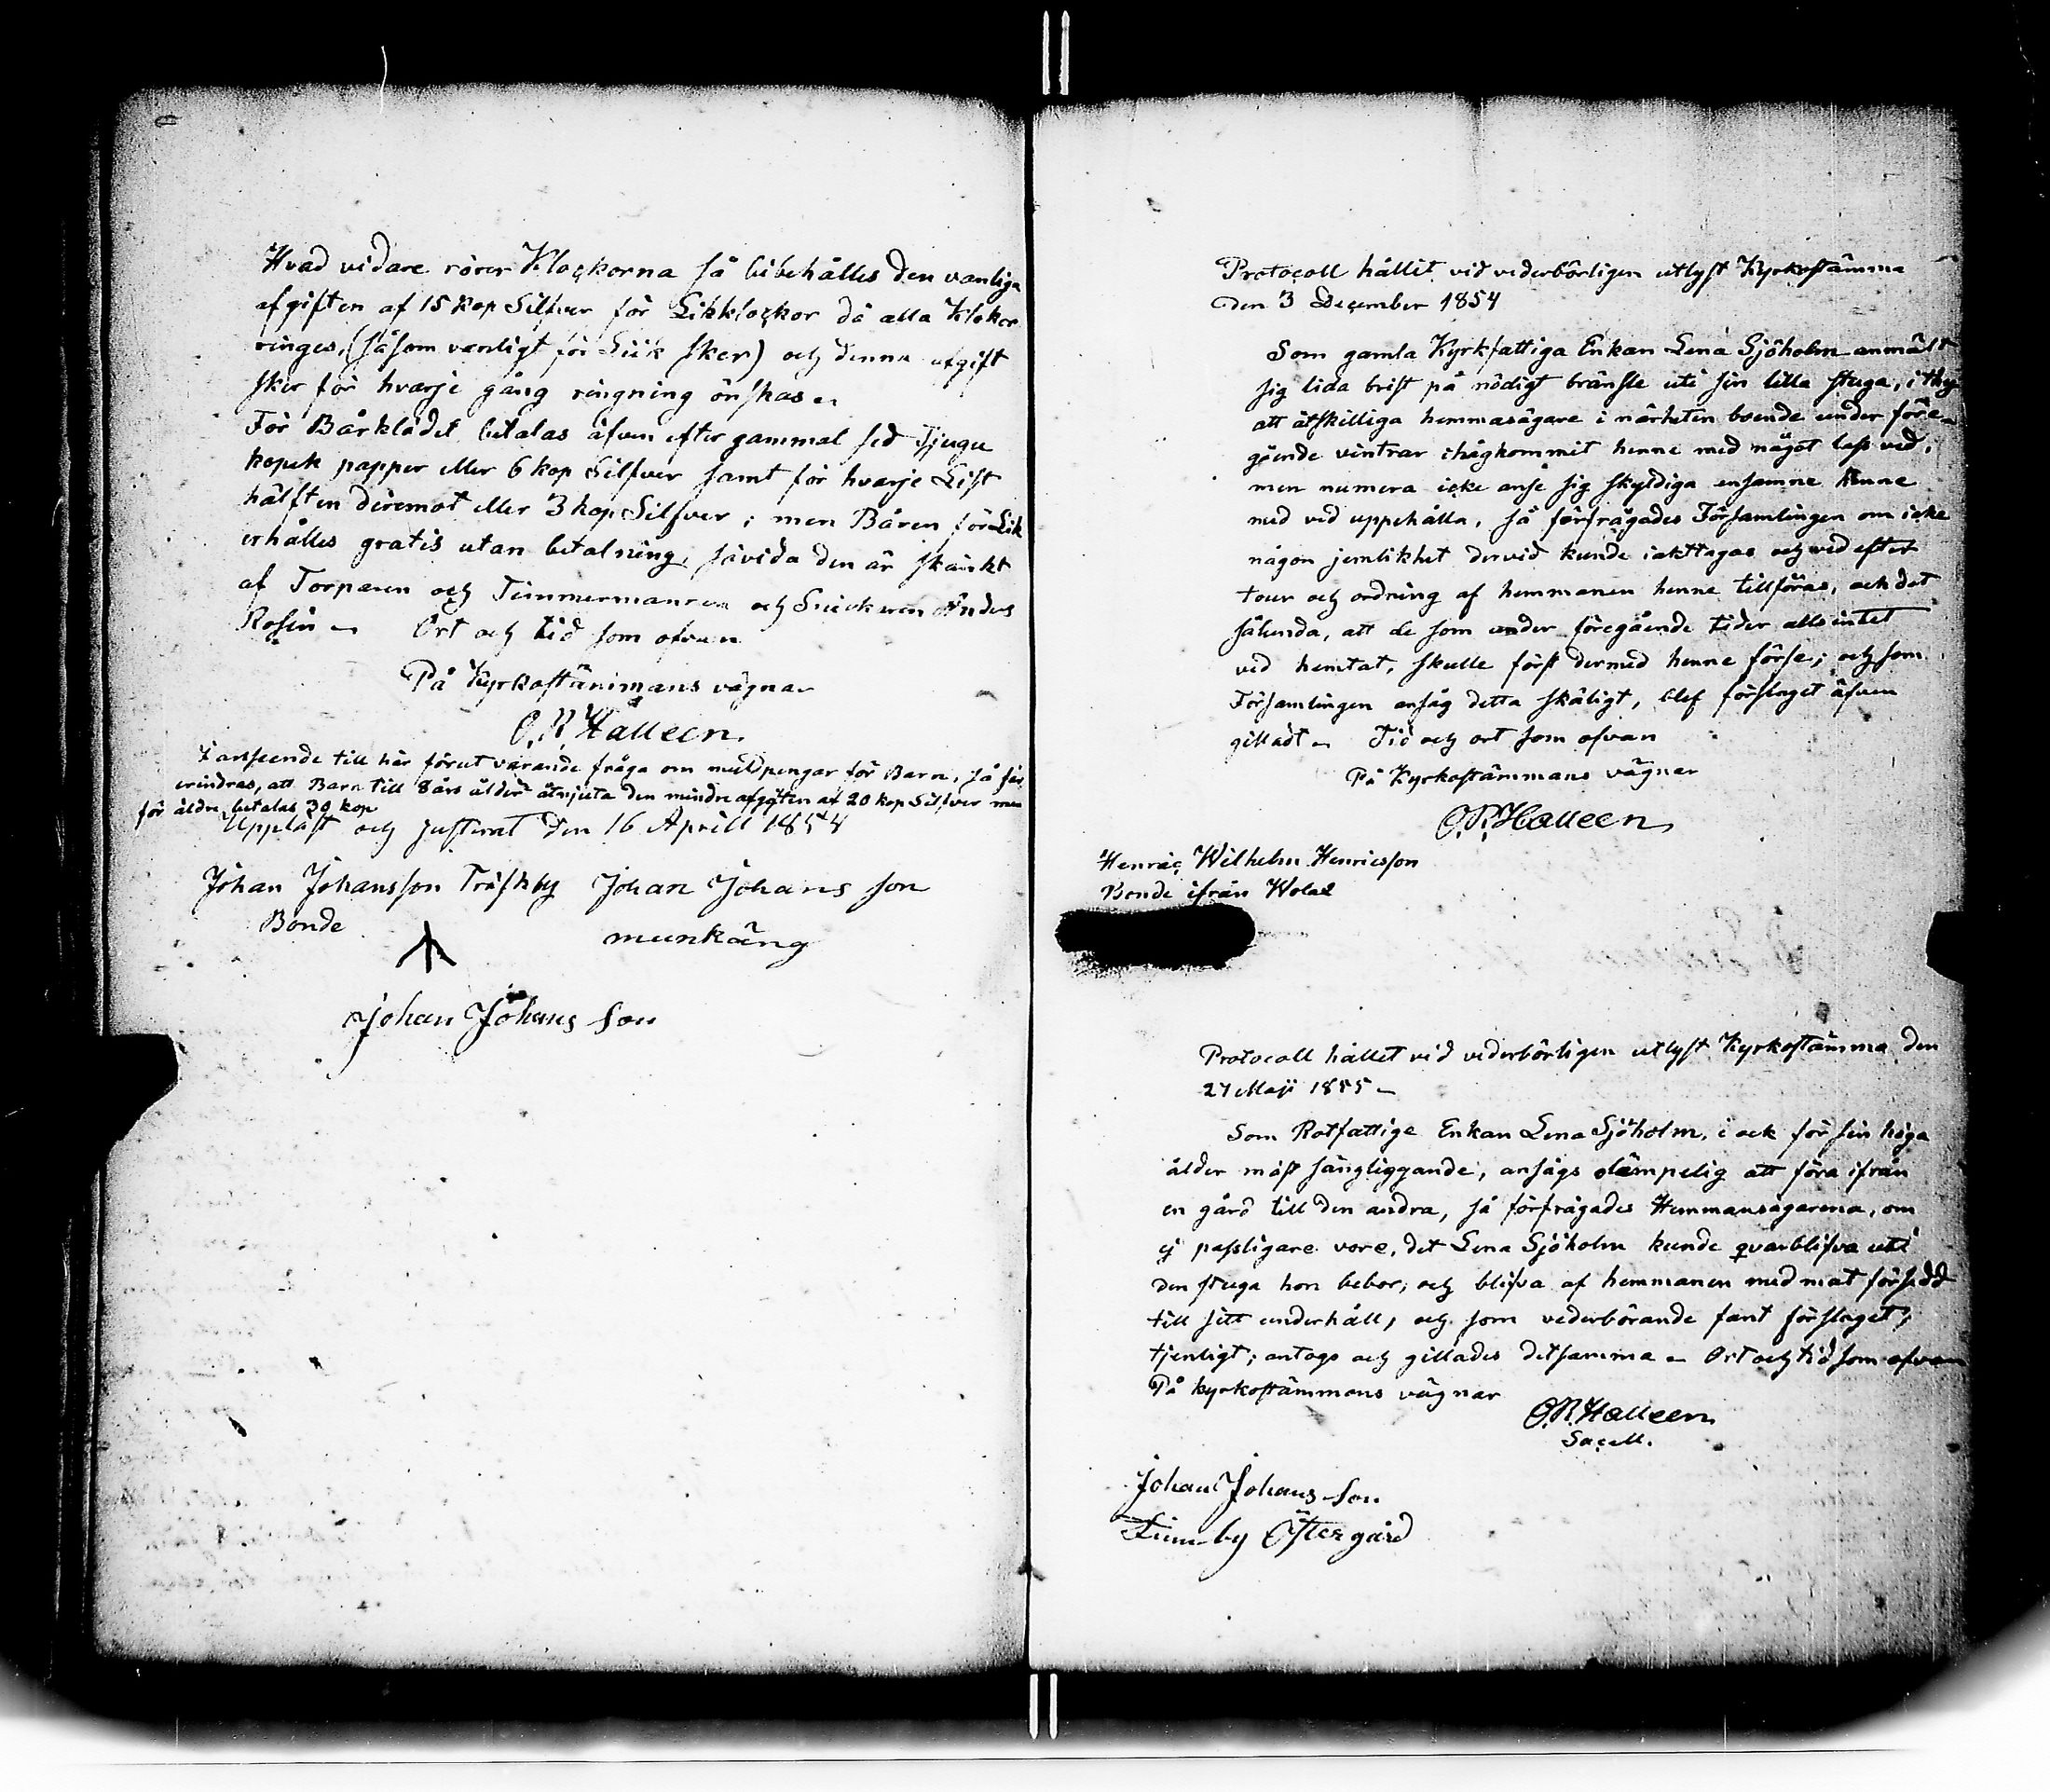 Hvad vidare rörer Klockorna så bibehålles den vanliga
afgiften af 15 kop Silfver för Likklockor då alla Klokor
ringes, (såsom vanligt för Liik sker) och denna afgift
sker för hvarje gång ringning önskas
För Bårklädet betalas äfven efter gammal sed Tjugu
kopek papper eller 6 kop Silfver samt för hvarje List
hälften deremot eller 3 kop Silfver; men Båren för Lik
erhålles gratis utan betalning, såvida den är skänkt
af Torparen och Timmermannen och Snickaren Anders
Rosin Ort och tid som ofvan
På Kyrkostämmans vägnar
O. R. Halleen.
I anseende till här förut varande fråga om mullpengar för Barn, så får
erindras, att Barn till 8 års ålder åtnjuta den mindre afgiften af 20 kop Silfver men
för äldre betalas 30 kop
Uppläst och justerat den 16 Aprill 1854
Johan Johansson Träskby Johan Johans son
Bonde
munkäng
Johan Johans son
Protocoll hållit vid vederbörligen utlyst Kyrkostämma
den 3 December 1854
Som gamla Kyrkfattiga Enkan Lena Sjöholm anmält
sig lida brist på nödigt bränsle uti sin lilla stuga, i thy
att åtskilliga hemmasägare i närheten boende under före-
gående vintrar ihågkommit henne med något lass ved,
men numera icke anse sig skyldiga ensamne henne
med ved uppehålla, så förfrågades Församlingen om icke
någon jemlikhet dervid kunde iakttagas och ved efter
tour och ordning af hemmanen henne tillföras, och det
sålunda, att de som under föregående tider alls intet
ved hemtat, skulle först dermed henne förse; och som
Församlingen ansåg detta skäligt, blef förslaget äfven
gilladt Tid och ort som ofvan
På Kyrkostämmans vägnar
O. R. Halleen
Henric Wilhelm Henricsson
Bonde ifrån
Protocoll hållet vid vederbörligen utlyst Kyrkostämma den
27 Maji 1855
Som Rotfattige Enkan Lena Sjöholm, i ock för sin höga
ålder mäst sängliggande, ansågs olämpelig att föra ifrån
en gård till den andra, så förfrågades Hemmansägarena, om
ej passligare vore, det Lena Sjöholm kunde qvarblifva uti
den stuga hon bebor, och blifva af hemmanen med mat försedd
till sitt underhåll, och som vederbörande fant förslaget
tjenligt; antogs och gillades detsamma Ort och tid som ofvan
På kyrkostämmans vägnar
O. R. Halleen
Sacell.
Johan Johans son
by Östergård